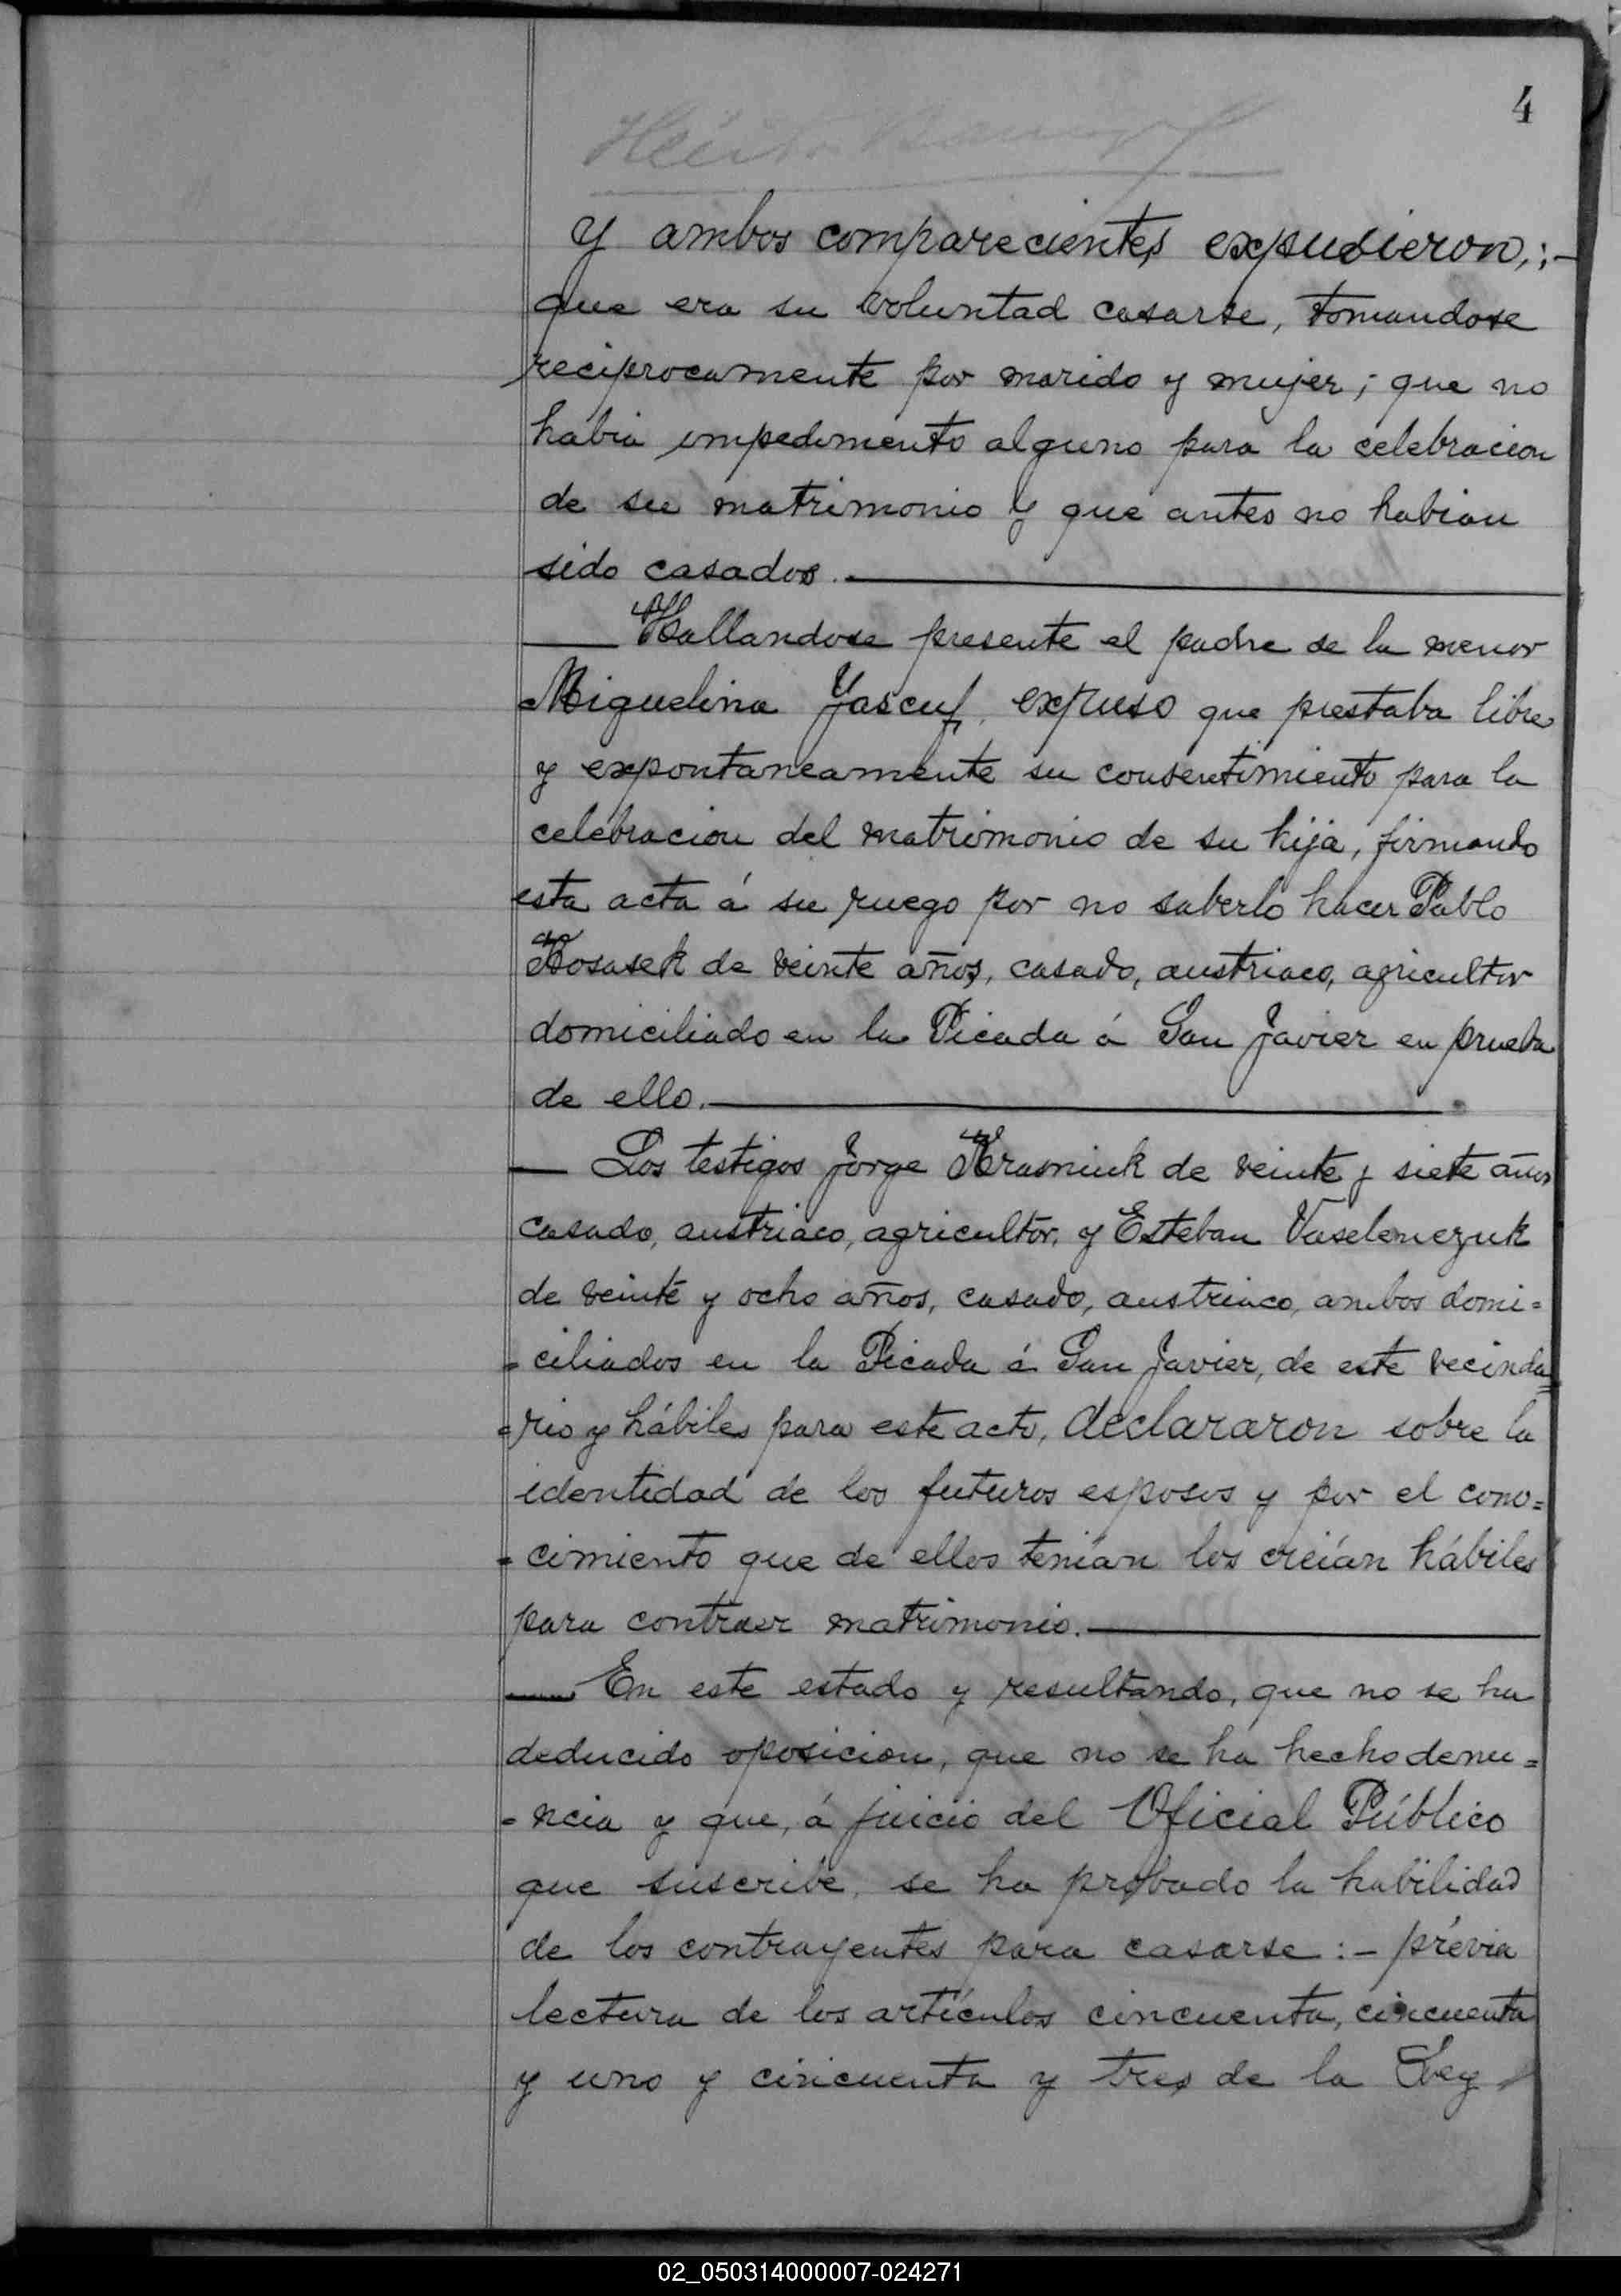 4
y ambos comparecientes expusieron,:-
que era su voluntad casarse, tomandose
reciprocamente por marido y mujer; que no
habia impedimento alguno para la celebracion
de su matrimonio y que antes no habian
sido casados.
Hallandose presente el padre de la menor
Miguelina Jascuf, expuso que prestaba libre
y expontaneamente su consentimiento para la
celebracion del matrimonio de su hija, firmando
esta acta á su ruego por no saberlo hacer Pablo
Kosasek de veinte años, casado, austriaco, agricultor
domiciliado en la Picada á San Javier en prueba
de ello.
Los testigos Jorge Krasniuk de veinte y siete años
casado, austriaco, agricultor, y Esteban Vaselenczuk
de veinte y ocho años, casado, austriaco, ambos domi=
=ciliados en la Picada á San Javier, de este vecinda=
=rio y hábiles para este acto, declararon sobre la
identidad de los futuros esposos y por el cono=
=cimiento que de ellos tenían los creían hábiles
para contraer matrimonio.
En este estado y resultando, que no se ha
deducido oposicion, que no se ha hecho denu=
=ncia y que, á juicio del Oficial Público
que suscribe, se ha probado la habilidad
de los contrayentes para casarse:- prévia
lectura de los artículos cincuenta, cincuenta
y uno y cincuenta y tres de la Ley
02_050314000007-024271